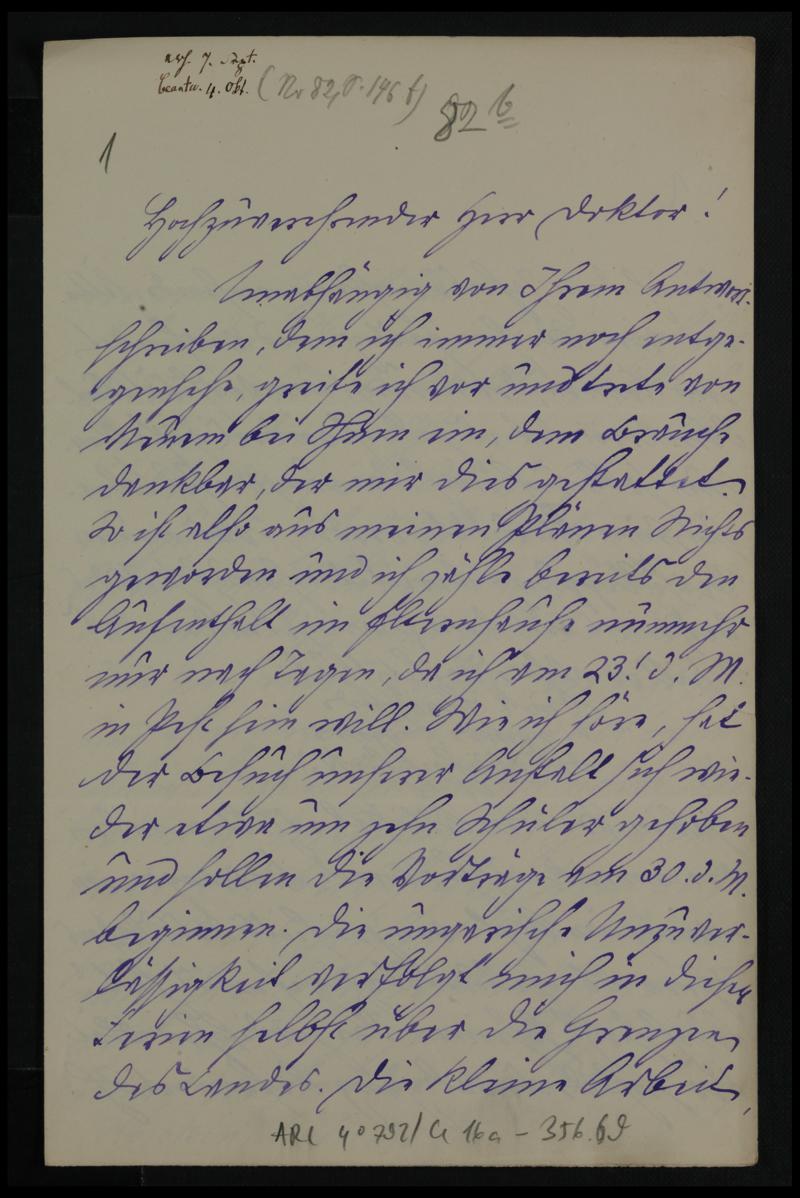 erh. 7. Sept.
beantw. 4. Okt. (No 82, S. 146 f)
82 b
1
Hochzuverehrender Herr Doktor!
Unabhängig von Ihrem Antwort-
schreiben, dem ich immer noch entge-
gensehe, greife ich vor und trete von
Neuem bei Ihnen ein, dem Brauche
dankbar, der mir dies gestattet.
So ist also aus meinen Plänen Nichts
geworden und ich zähle bereits den
Aufenthalt im Elternhause nunmehr
nur nach Tagen, da ich am 23. d. M.
in Pest sein will. Wie ich höre, hat
der Besuch unserer Anstalt sich wie-
der etwa um zehn Schüler gehoben
und sollen die Vorträge am 30. d. M.
beginnen. Die ungarische Unzuver-
lässigkeit verfolgt mich in diesen
Ferien selbst über die Grenzen
des Landes. Die kleine Arbeit,
ARC 4° 792/